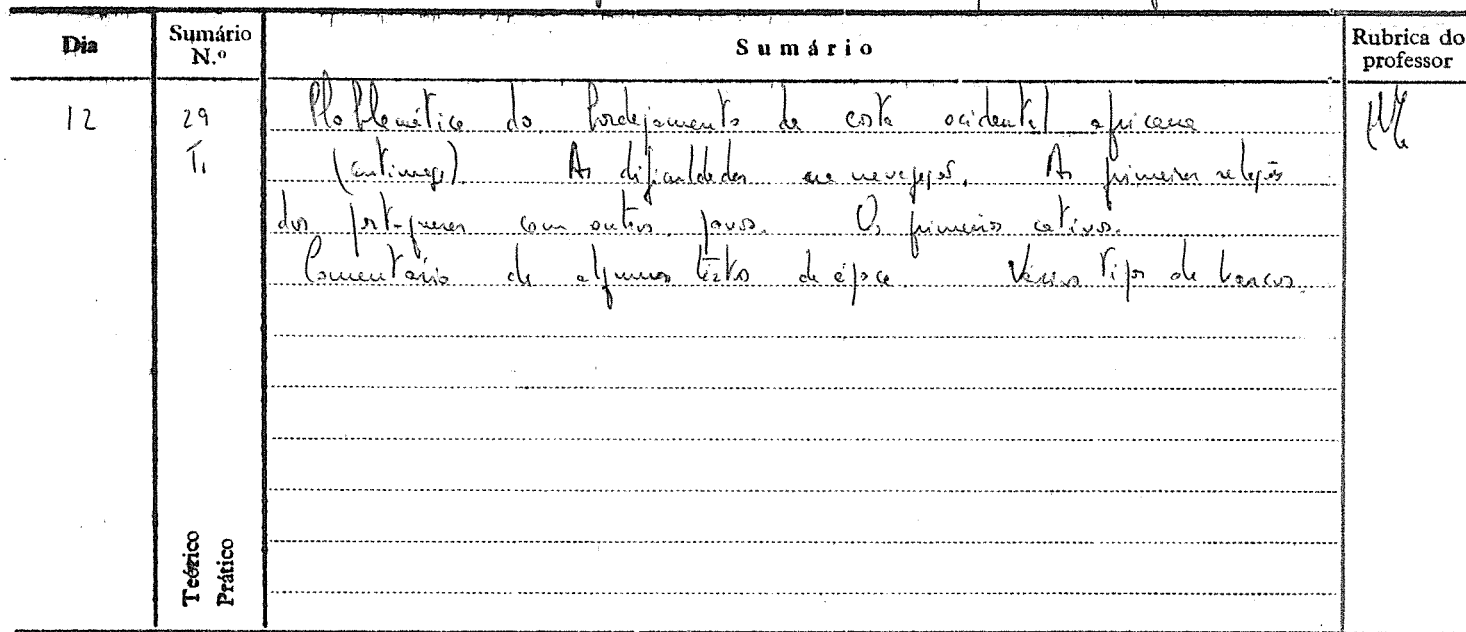 Dia Sumário N.º Sumário Rubrica do professor
12 29 Problemática do bordejamento da costa ocidental africana
T. (continuação). As dificuldades de navegação. As primeiras relações
dos portugueses com outros povos. Os primeiros cativos.
Comentário de alguns textos da época Vários tipos de barcos.
Teórico
Prático